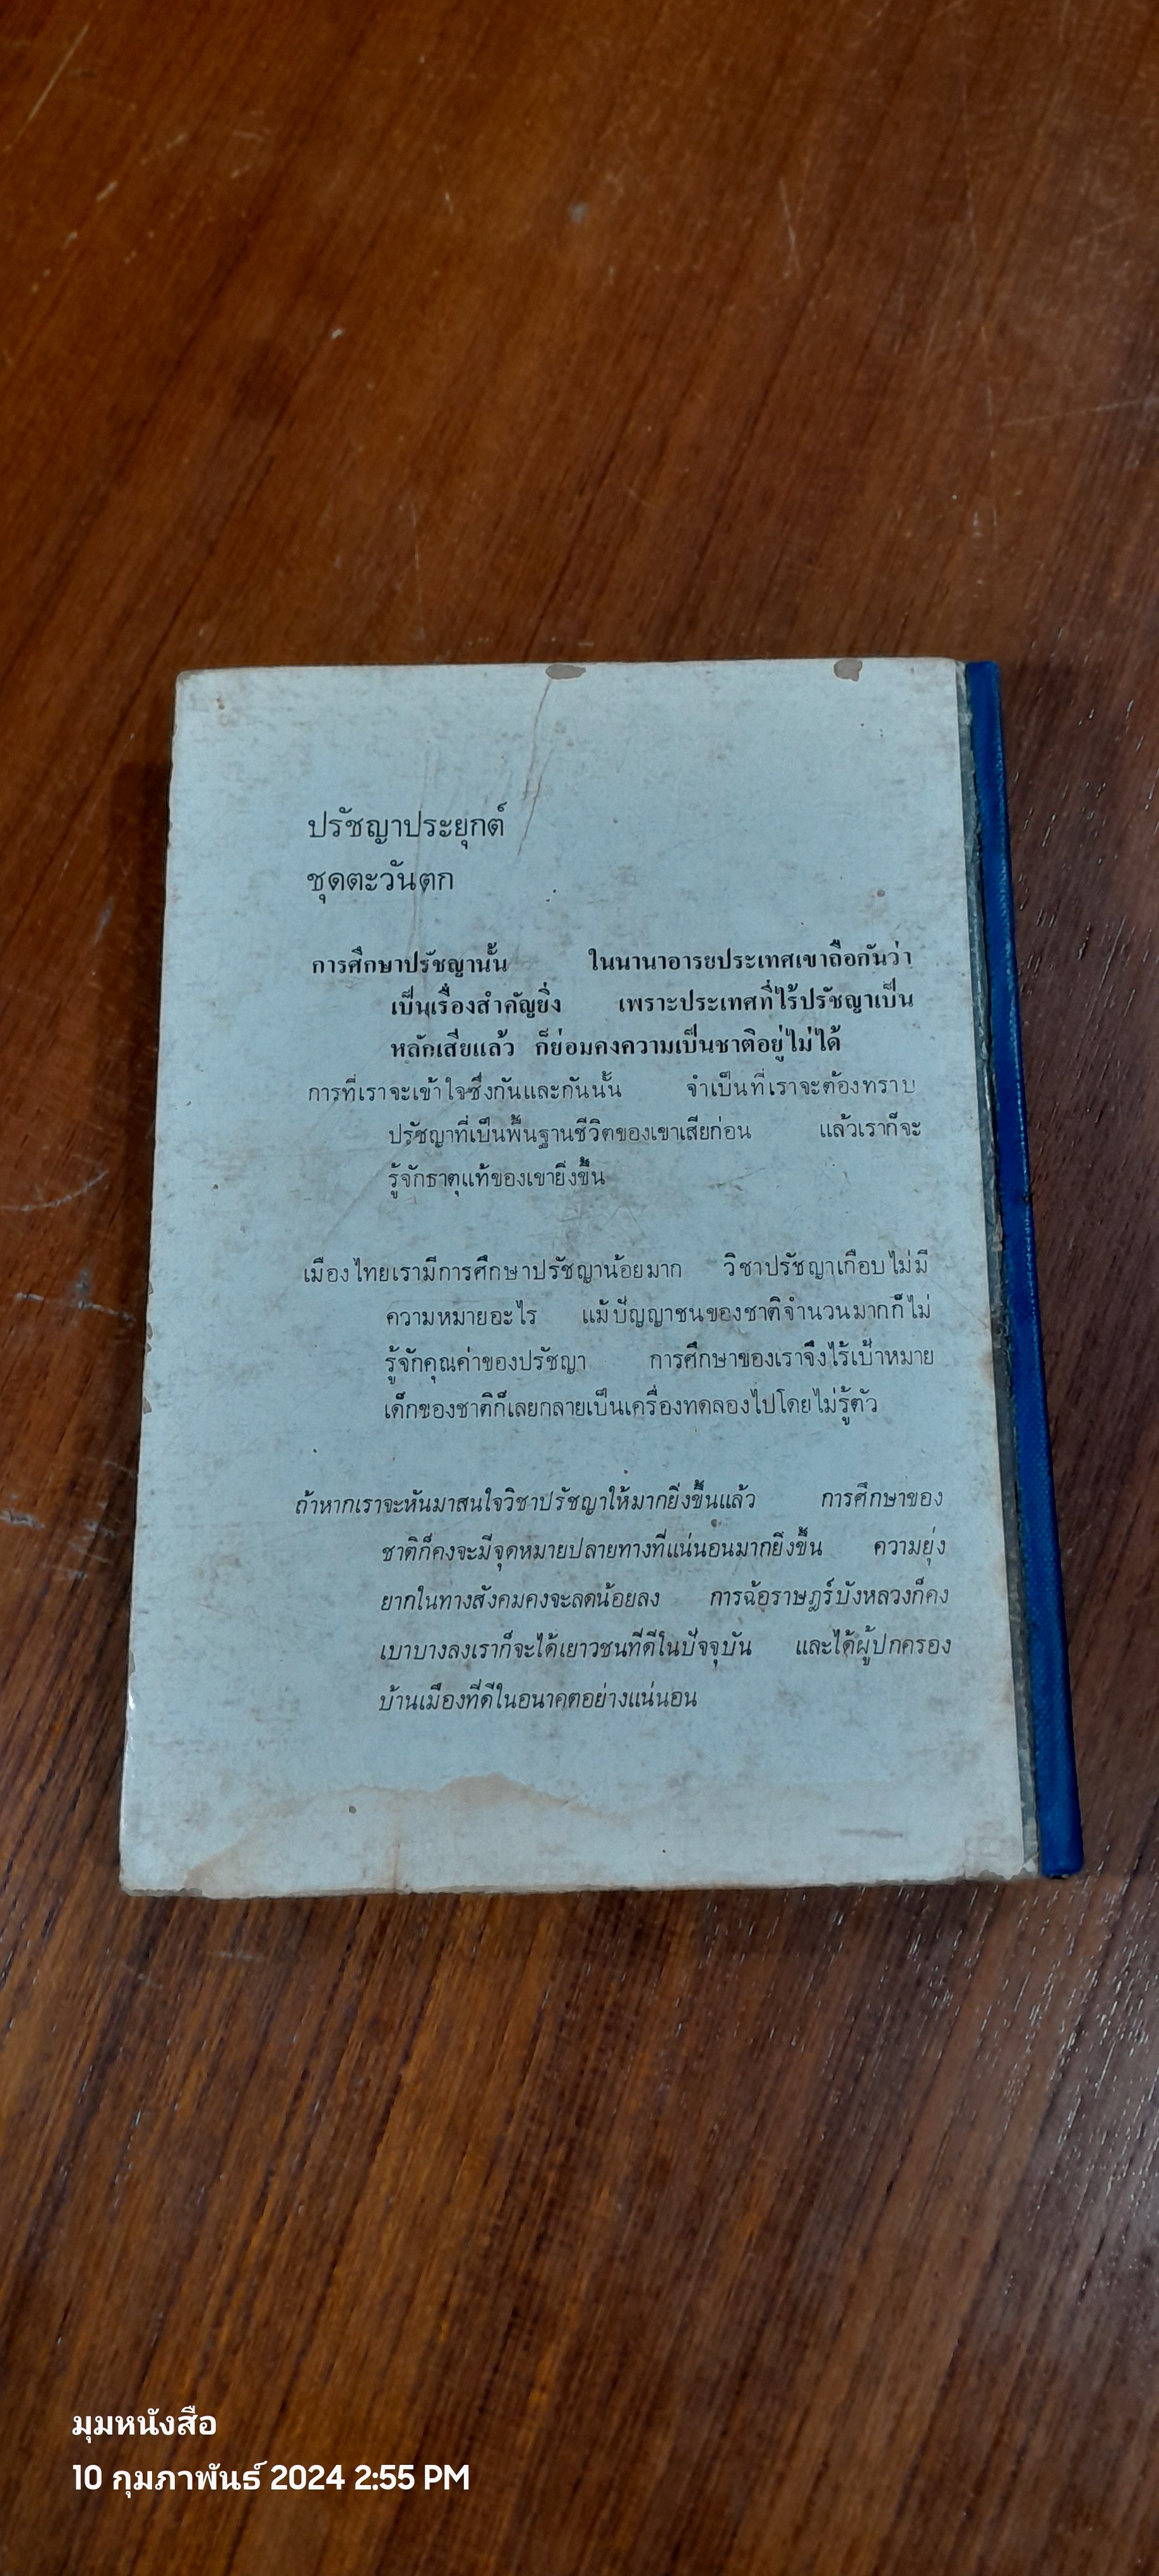 ปรัชญาประยุกต์
ชุดตะวันตก
การศึกษาปรัชญานั้น ในนานาอารยประเทศเขาถือกันว่า
เป็นเรื่องสำคัญยิ่ง เพราะประเทศที่ไร้ปรัชญาเป็น
หลักเสียแล้ว ก็ย่อมคงความเป็นชาติอยู่ไม่ได้
การที่เราจะเข้าใจซึ่งกันและกันนั้น จำเป็นที่เราจะต้องทราบ
ปรัชญาที่เป็นพื้นฐานชีวิตของเขาเสียก่อน แล้วเราก็จะ
รู้จักธาตุแท้ของเขายิ่งขึ้น
เมืองไทยเรามีการศึกษาปรัชญาน้อยมาก วิชาปรัชญาเกือบไม่มี
ความหมายอะไร แม้ปัญญาชนของชาติจำนวนมากก็ไม่
รู้จักคุณค่าของปรัชญา การศึกษาของเราจึงไร้เป้าหมาย
เด็กของชาติก็เลยกลายเป็นเครื่องทดลองไปโดยไม่รู้ตัว
ถ้าหากเราจะหันมาสนใจวิชาปรัชญาให้มากยิ่งขึ้นแล้ว การศึกษาของ
ชาติก็คงจะมีจุดหมายปลายทางที่แน่นอนมากยิ่งขึ้น ความยุ่ง
ยากในทางสังคมคงจะลดน้อยลง การฉ้อราษฎร์บังหลวงก็คง
เบาบางลงเราก็จะได้เยาวชนที่ดีในปัจจุบัน และได้ผู้ปกครอง
บ้านเมืองที่ดีในอนาคตอย่างแน่นอน
มุมหนังสือ
10 กุมภาพันธ์ 2024 2:55 PM